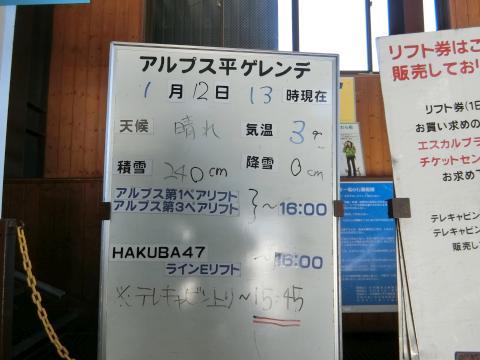 アルプス平ゲレンデ
1月12日 13時現在
天候 晴れ 気温 3℃
積雪 240cm 降雪 0cm
アルプス第1ペアリフト
アルプス第3ペアリフト
〜16:00
HAKUBA47
ラインEリフト
〜16:00
※テレキャビン上り〜15:45
リフト券はこ
販売しており
リフト券(1日
お買い求めの
エスカルプラ
チケットセン
お求め下
テレキャビン
テレキャビン
販売して